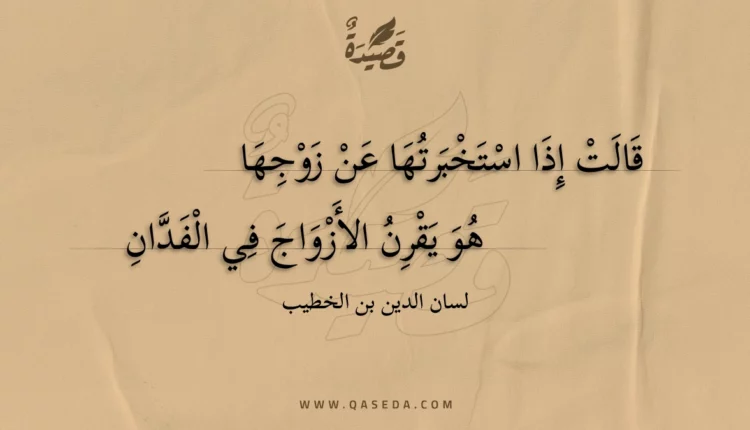 قَصِيْدَةٌ
قَالَتْ إِذَا اسْتَخْبَرتُهَا عَنْ زَوْجِهَا
هُوَ يَقْرِنُ الأَزْوَاجَ فِي الْفَدَّانِ
لسان الدين بن الخطيب
WWW.QASEDA.COM